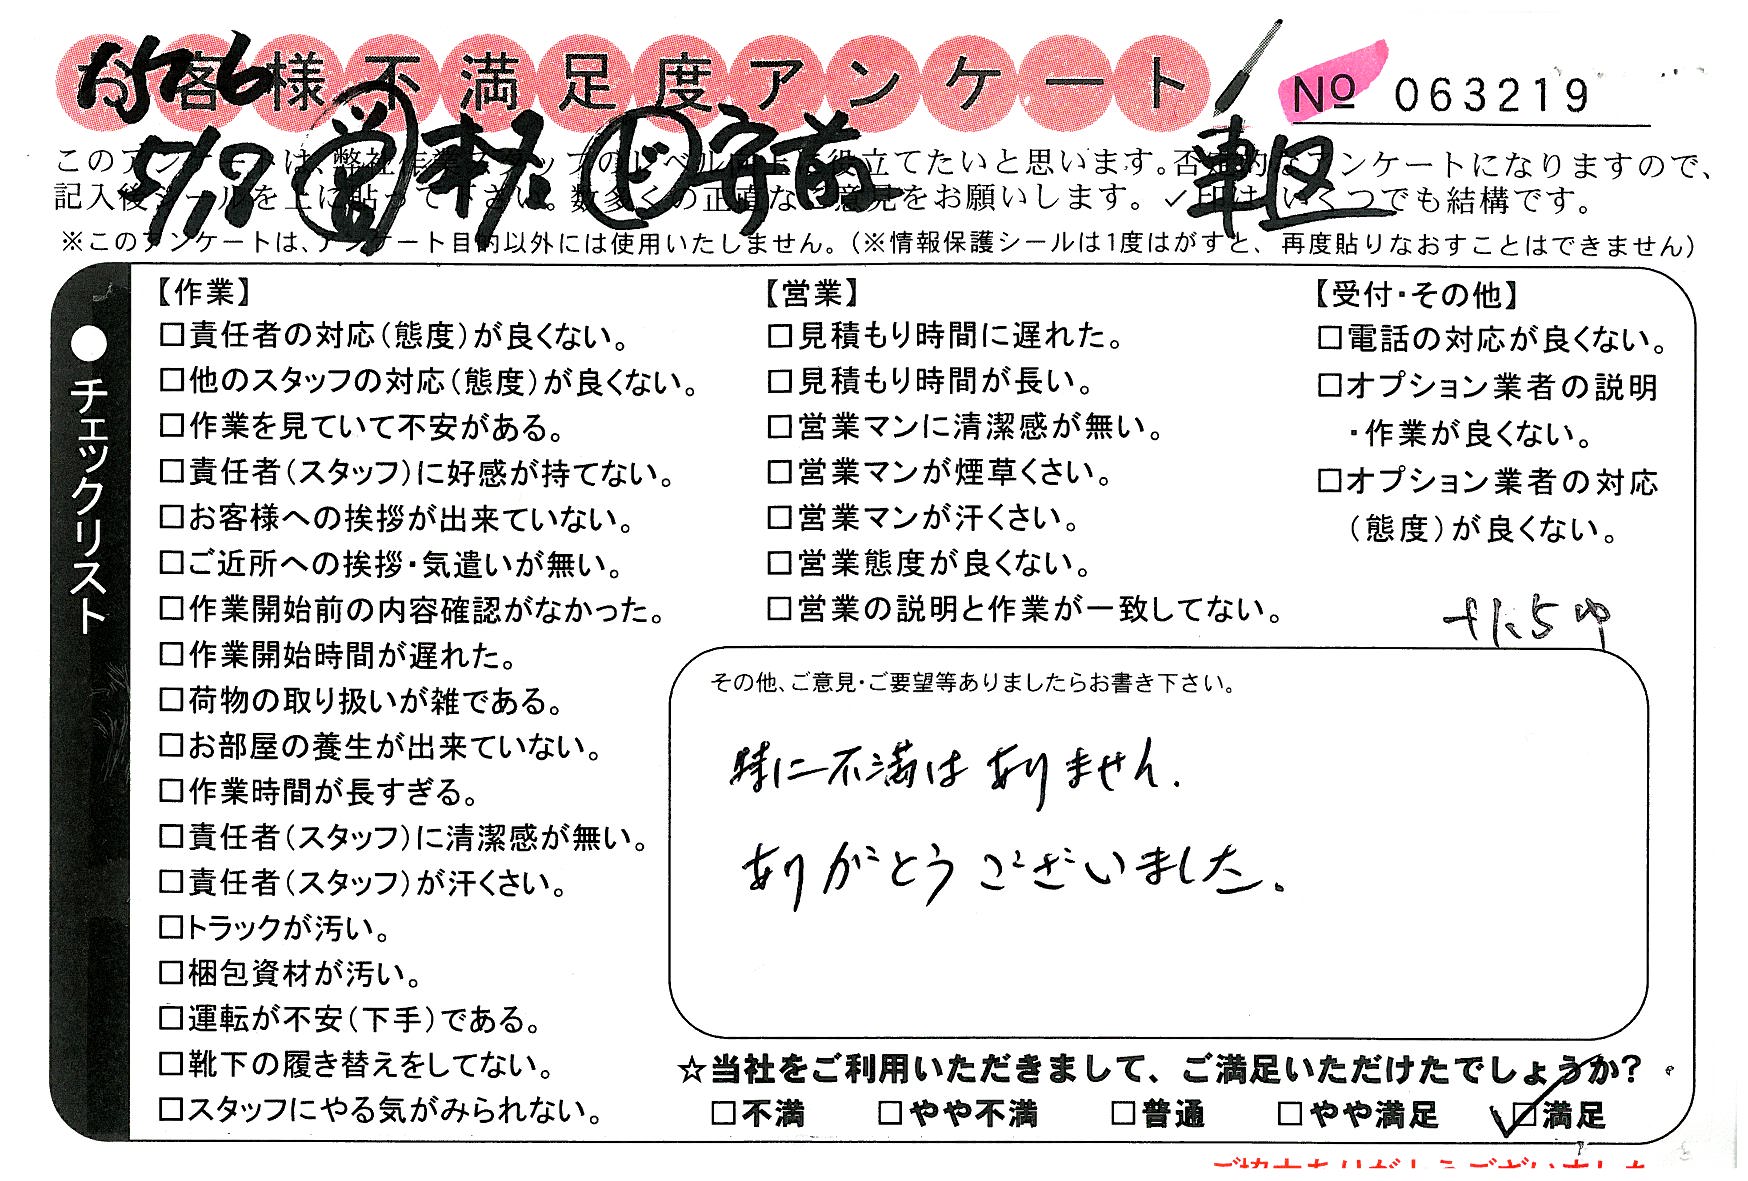 お客様不満足度アンケート
№ 063219
このアンケートは、弊社作業スタッフのレベル向上に役立てたいと思います。否定的なアンケートになりますので、
記入後シールを上に貼って下さい。数多くの正直なご意見をお願いします。✓印は、いくつでも結構です。
※このアンケートは、アンケート目的以外には使用いたしません。(※情報保護シールは1度はがすと、再度貼りなおすことはできません)
●チェックリスト
【作業】
□責任者の対応(態度)が良くない。
□他のスタッフの対応(態度)が良くない。
□作業を見ていて不安がある。
□責任者(スタッフ)に好感が持てない。
□お客様への挨拶が出来ていない。
□ご近所への挨拶・気遣いが無い。
□作業開始前の内容確認がなかった。
□作業開始時間が遅れた。
□荷物の取り扱いが雑である。
□お部屋の養生が出来ていない。
□作業時間が長すぎる。
□責任者(スタッフ)に清潔感が無い。
□責任者(スタッフ)が汗くさい。
□トラックが汚い。
□梱包資材が汚い。
□運転が不安(下手)である。
□靴下の履き替えをしてない。
□スタッフにやる気がみられない。
【営業】
□見積もり時間に遅れた。
□見積もり時間が長い。
□営業マンに清潔感が無い。
□営業マンが煙草くさい。
□営業マンが汗くさい。
□営業態度が良くない。
□営業の説明と作業が一致してない。
【受付・その他】
□電話の対応が良くない。
□オプション業者の説明
・作業が良くない。
□オプション業者の対応
(態度)が良くない。
その他、ご意見・ご要望等ありましたらお書き下さい。
特に不満はありません.
ありがとうございました.
☆当社をご利用いただきまして、ご満足いただけたでしょうか?
□不満 □やや不満 □普通 □やや満足 ☑満足
ご協力ありがとうございました